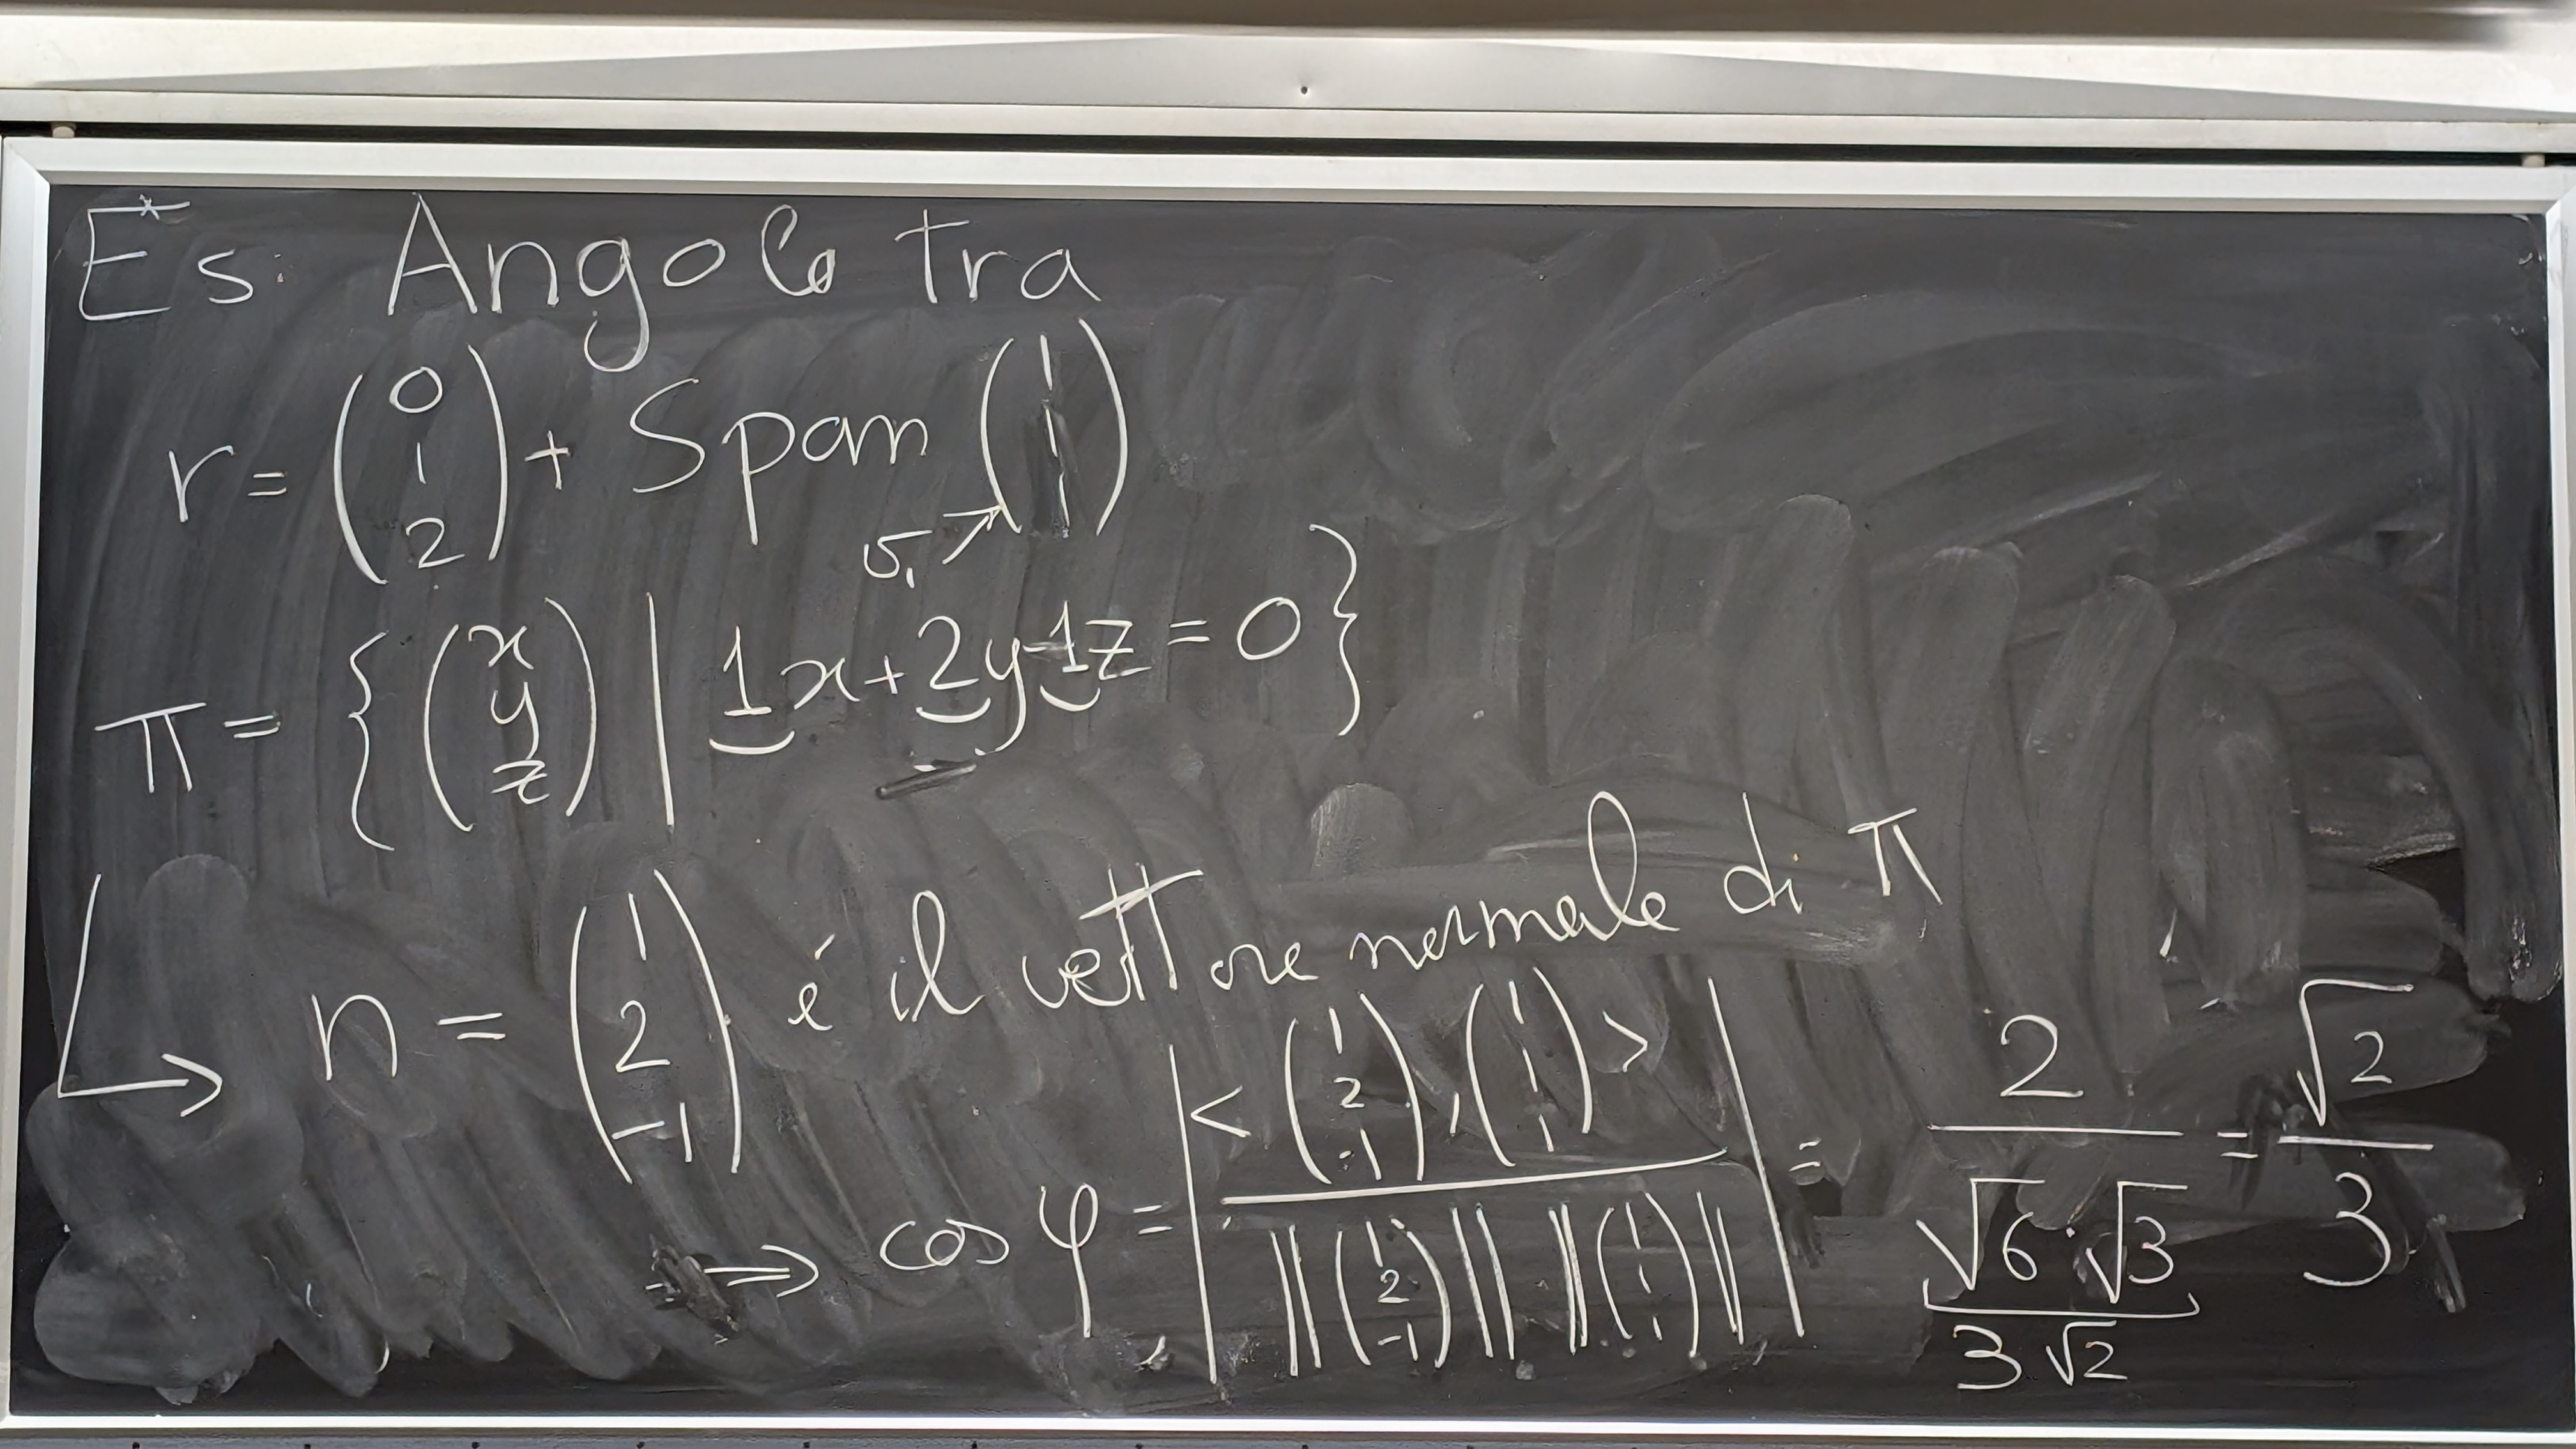 Es: Angolo tra
r = (0 1 2) + Span (1 1 1)
v₁ →
π = { (x y z) | 1x + 2y - 1z = 0 }
↳ n = (1 2 -1) é il vettore normale di π
⇒ cos φ = | < (1 2 -1), (1 1 1) > / ‖(1 2 -1)‖ ‖(1 1 1)‖ | = 2 / √6 · √3 = √2 / 3
3√2